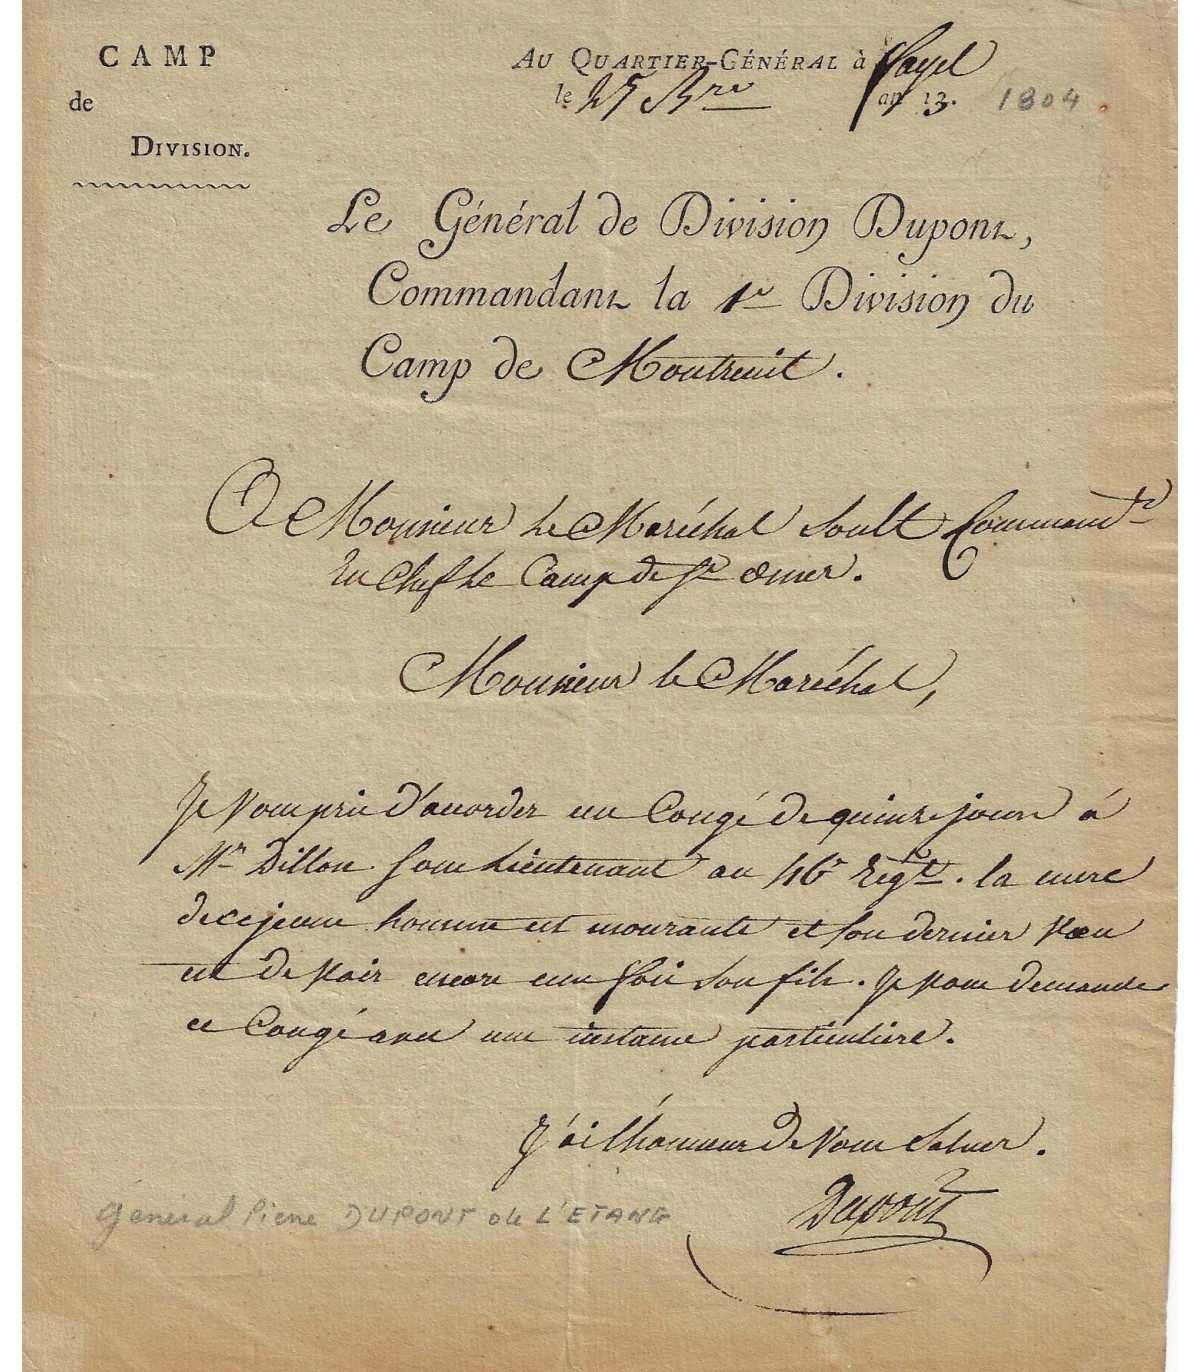 CAMP
de
DIVISION.
AU QUARTIER-GÉNÉRAL à
le 25 Bre an 13. 1804
Le Général de Division Dupont,
Commandant la 1re Division du
Camp de Montreuil.
A Monsieur le Maréchal Soult Commandt
En Chef le Camp de St omer.
Monsieur le Maréchal,
Je Vous prie d'accorder un Congé de quinze jours à
Mr Dillon Sous Lieutenant au 46e Régt. la mere
de ce jeune homme est mourante et son dernier Vœu
est de Voir encore une fois son fils. Je Vous demande
ce Congé avec une instance particulière.
J'ai l'honneur de Vous Saluer.
Dupont
Général Pierre DUPONT de L'ETANG